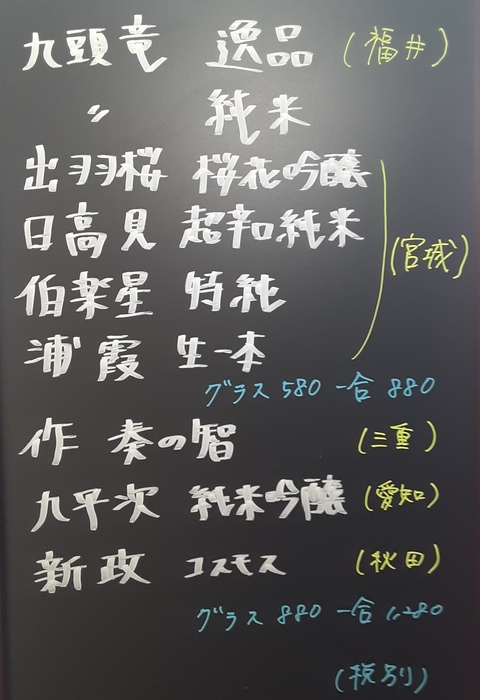 九頭竜 逸品 (福井)
〃 純米
出羽桜 桜花吟醸
日高見 超辛純米
伯楽星 特純
(宮城)
浦霞 生一本
グラス 580 一合 880
作 奏の智 (三重)
九平次 純米吟醸 (愛知)
新政 コスモス (秋田)
グラス 880 一合 1,280
(税別)